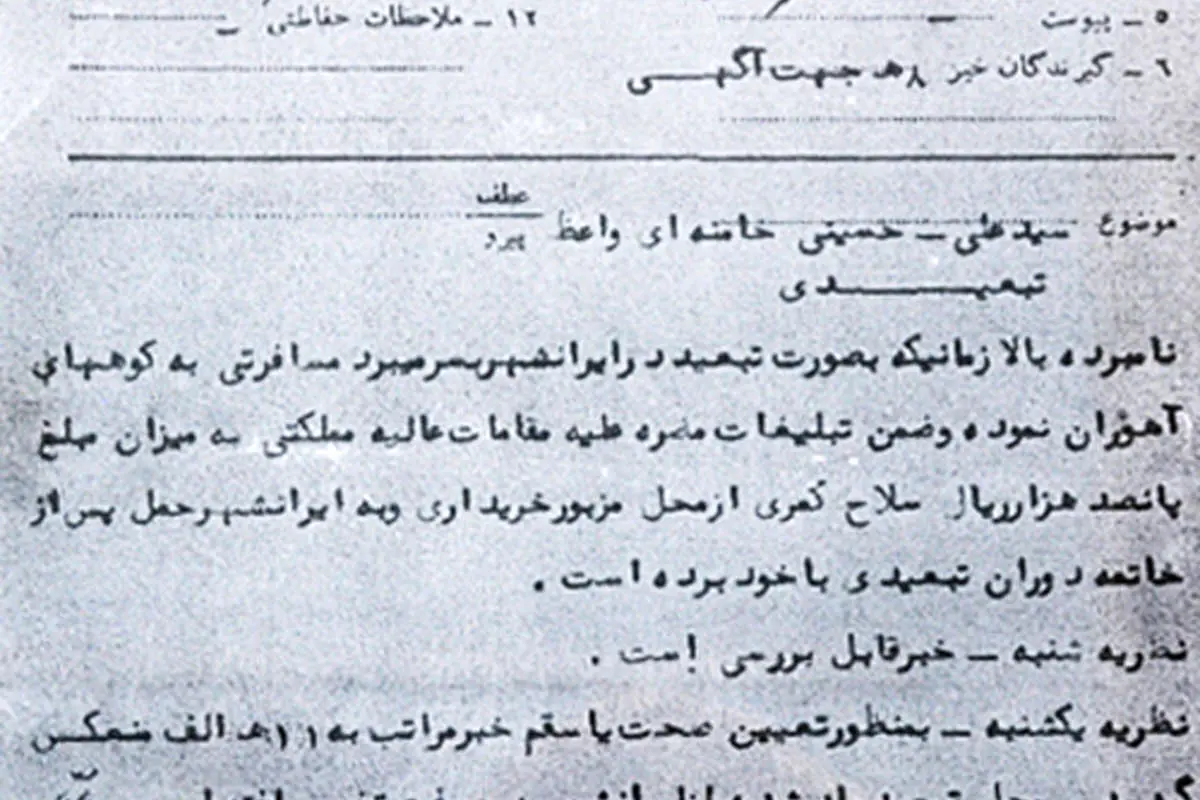 ۵ - پیوست
۱۲ - ملاحظات حفاظتی
۶ - گیرندگان خبر ۸ هـ جهت آگهی
موضوع سید علی - حسینی خامنه ای واعظ عطف
پیرو
تبعیدی
نامبرده بالا زمانیکه بصورت تبعید در ایرانشهر بسر میبرد مسافرتی به کوههای
آهوران نموده وضمن تبلیغات مضره علیه مقامات عالیه مملکتی به میزان مبلغ
پانصد هزارریال سلاح کمری ازمحل مزبور خریداری وبه ایرانشهر حمل پس از
خاتمه دوران تبعیدی باخود برده است .
نظریه شنبه - خبر قابل بررسی است .
نظریه یکشنبه - بمنظور تعیین صحت یا سقم خبر مراتب به ۱۱ هـ الف منعکس